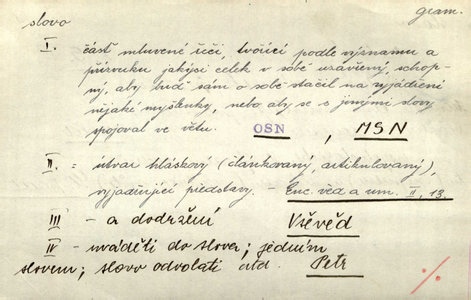 slovo gram.
I. část mluvené řeči, tvořící podle významu a
přízvuku jakýsi celek v sobě uzavřený, schop-
ný, aby buď sám o sobě stačil na vyjádření
nějaké myšlenky, nebo aby se s jinými slovy
spojoval ve větu. OSN, MSN
II. - útvar hláskový (článkovaný, artikulovaný),
vyjadřující představy. - Enc. věd a um. II, 13.
III - a dodržení Vševěd
IV - uváděti do slova; jedním
slovem; slovo odvolati atd. Petr